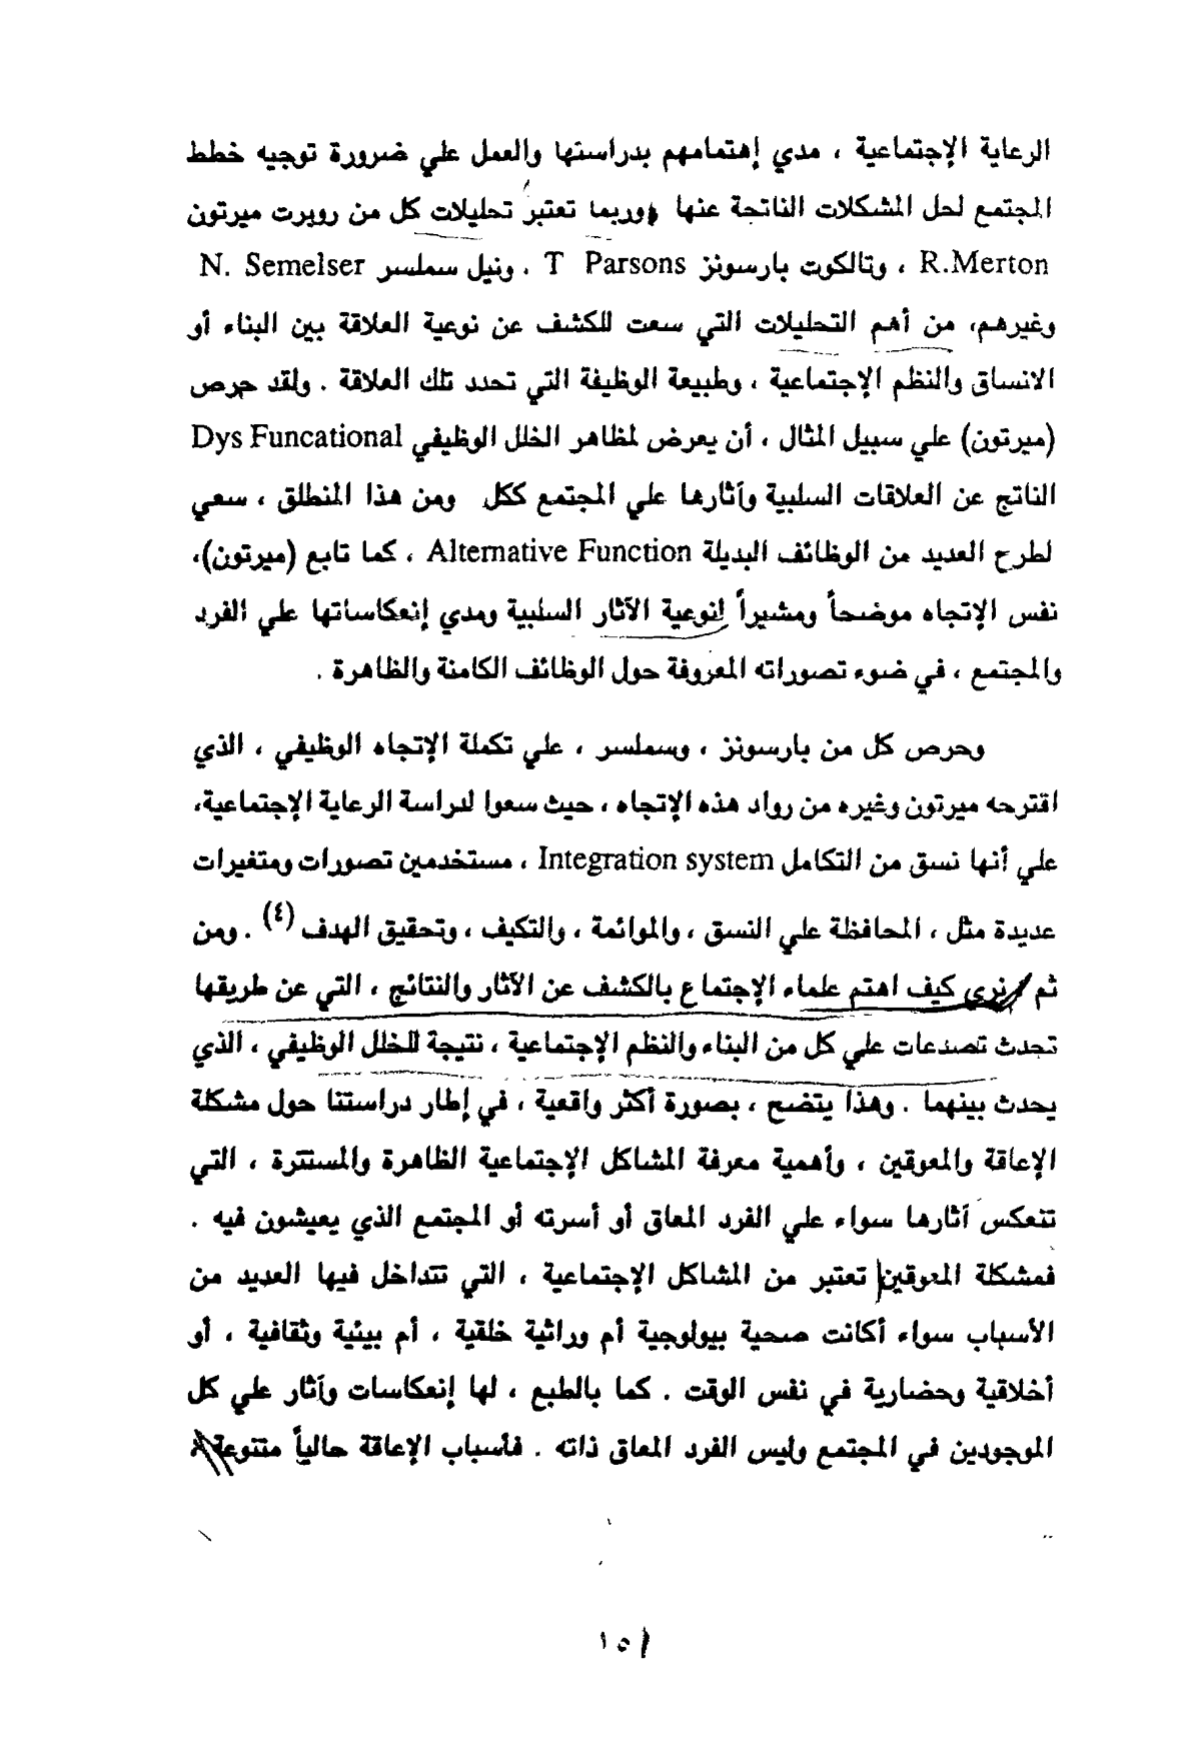 الرعاية الإجتماعية ، مدي إهتمامهم بدراستها والعمل علي ضرورة توجيه خطط
المجتمع لحل المشكلات الناتجة عنها وربما تعتبر تحليلات كل من روبرت ميرتون
R.Merton ، وتالكوت بارسونز T Parsons ، ونيل سملسر N. Semelser
وغيرهم، من أهم التحليلات التي سعت للكشف عن نوعية العلاقة بين البناء أو
الانساق والنظم الإجتماعية ، وطبيعة الوظيفة التي تحدد تلك العلاقة . ولقد حرص
(ميرتون) علي سبيل المثال ، أن يعرض لمظاهر الخلل الوظيفي Dys Funcational
الناتج عن العلاقات السلبية وأثارها علي المجتمع ككل ومن هذا المنطلق ، سعي
لطرح العديد من الوظائف البديلة Alternative Function ، كما تابع (ميرتون)،
نفس الإتجاه موضحاً ومشيراً لنوعية الآثار السلبية ومدي إنعكاساتها علي الفرد
والمجتمع ، في ضوء تصوراته المعروفة حول الوظائف الكامنة والظاهرة .
وحرص كل من بارسونز ، وسملسر ، علي تكملة الإتجاه الوظيفي ، الذي
اقترحه ميرتون وغيره من رواد هذه الإتجاه ، حيث سعوا لدراسة الرعاية الإجتماعية،
علي أنها نسق من التكامل Integration system ، مستخدمين تصورات ومتغيرات
عديدة مثل ، المحافظة علي النسق ، والموائمة ، والتكيف ، وتحقيق الهدف (٤) . ومن
ثم نري كيف اهتم علماء الإجتماع بالكشف عن الآثار والنتائج ، التي عن طريقها
تحدث تصدعات علي كل من البناء والنظم الإجتماعية ، نتيجة للخلل الوظيفي ، الذي
يحدث بينهما . وهذا يتضح ، بصورة أكثر واقعية ، في إطار دراستنا حول مشكلة
الإعاقة والمعوقين ، وأهمية معرفة المشاكل الإجتماعية الظاهرة والمستترة ، التي
تنعكس آثارها سواء علي الفرد المعاق أو أسرته أو المجتمع الذي يعيشون فيه .
فمشكلة المعوقين تعتبر من المشاكل الإجتماعية ، التي تتداخل فيها العديد من
الأسباب سواء أكانت صحية بيولوجية أم وراثية خلقية ، أم بيئية وثقافية ، أو
أخلاقية وحضارية في نفس الوقت . كما بالطبع ، لها إنعكاسات وأثار علي كل
الموجودين في المجتمع وليس الفرد المعاق ذاته . فأسباب الإعاقة حالياً متنوعة
١٥